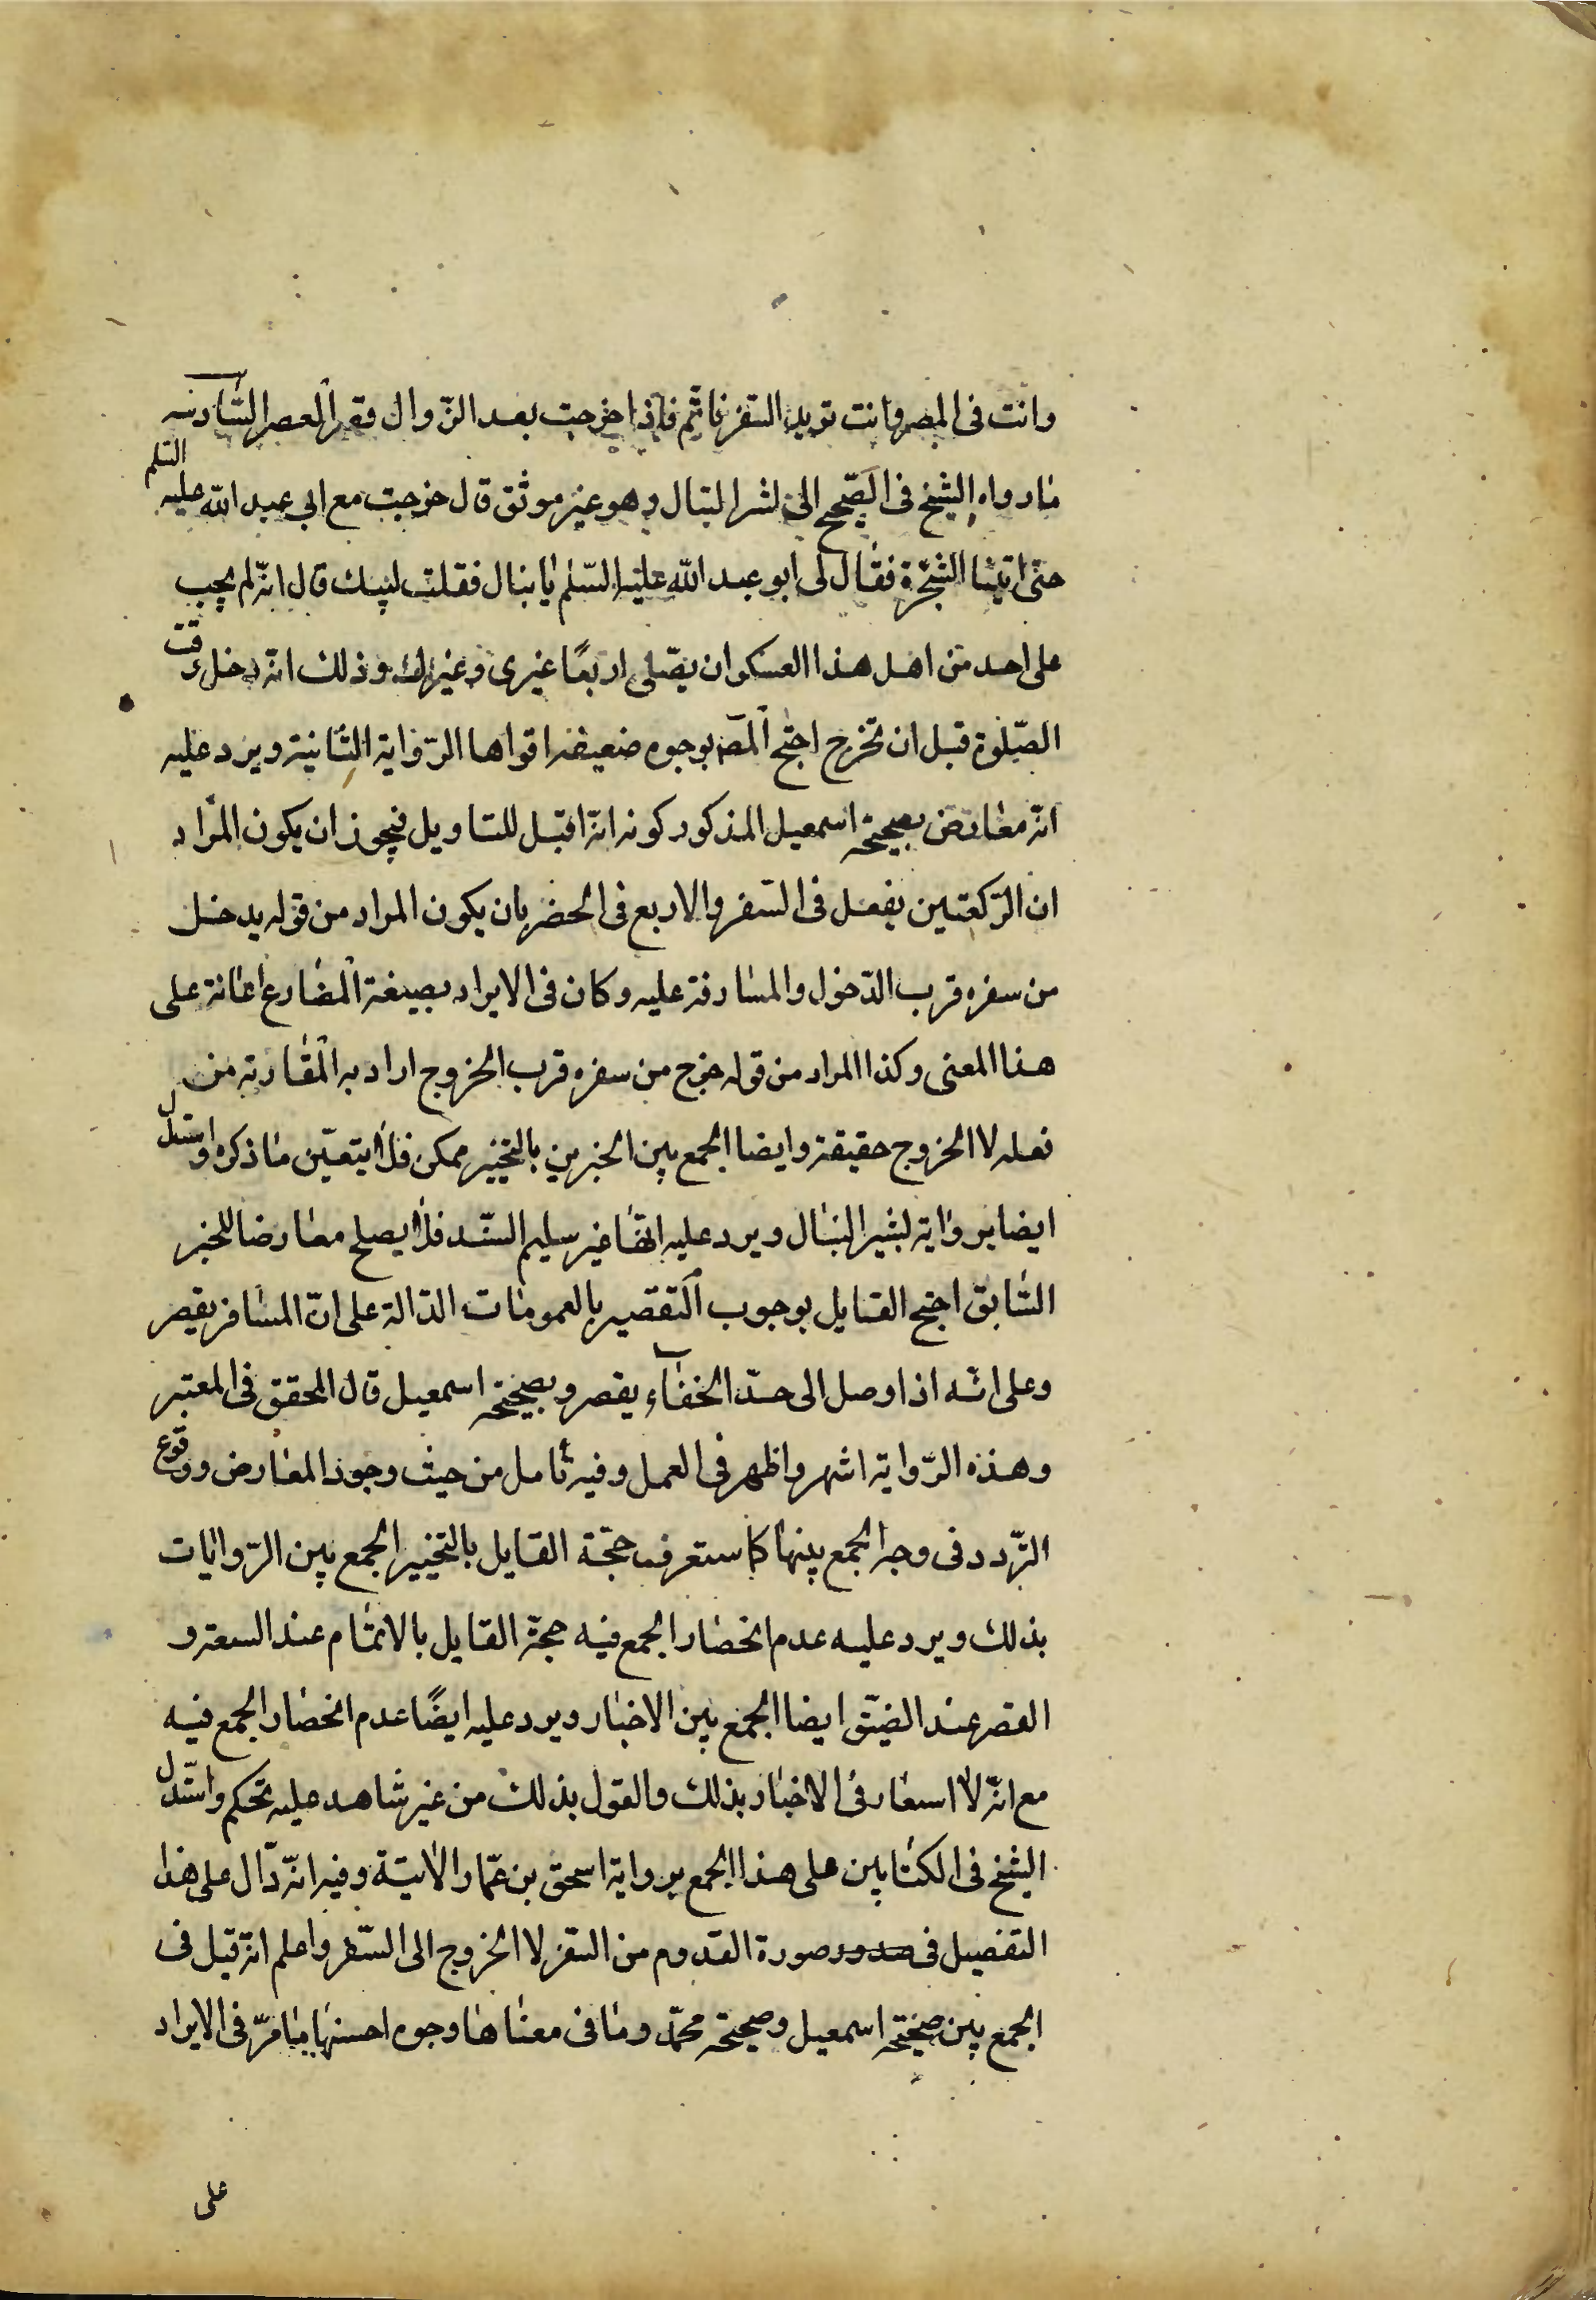 وانت فى المصر وانت تريد السفر فاتم فاذا خرجت بعد الزوال فقصر العصر السّادسه
ما رواه الشيخ فى الصّحيح الى بشر النبال وهو غير موثق قال خرجت مع ابي عبد اللّه عليه السّلم
حتى اتينا الشجرة فقال لى ابو عبد اللّه عليه السّلم يا نبال فقلت لبيك قال انّه لم يجب
على احد من اهل هذا العسكر ان يصّلى اربعًا غيرى وغيرك وذلك انّه دخل وقت
الصّلوة قبل ان نخرج احتج المصّ بوجوه ضعيفه اقواها الرّواية الثّانية ويرد عليه
انّه معارض بصحيحة اسمعيل المذكور كونه انّه اقبل للتاويل فيجوز ان يكون المراد
ان الرّكعتين يفعل فى السّفر والاربع فى الحضر بان يكون المراد من قوله يدخل
من سفره قرب الدّخول والمشارفة عليه وكان فى الايراد بصيغة المضارع اعانة على
هذا المعنى وكذا المراد من قوله خرج من سفره قرب الخروج اراد به المقاربة من
فعله لا الخروج حقيقة وايضا الجمع بين الخبرين بالتخيير ممكن فلا يتعيّن ما ذكره واستدلّ
ايضا برواية بشير النبال ويرد عليه انّها غير سليم السّند فلا يصلح معارضا للخبر
السّابق احتج القايل بوجوب التقصير بالعمومات الدّالة على انّ المسافر يقصر
وعلى انّه اذا وصل الى حدّ الخفاء يقصر وبصحيحة اسمعيل قال المحقق فى المعتبر
وهذه الرّواية اشهر واظهر فى العمل وفيه تأمل من حيث وجود المعارض ووقوع
التّردد فى وجه الجمع بينها كما ستعرف حجّة القايل بالتخيير الجمع بين الرّوايات
بذلك ويرد عليه عدم انحصار الجمع فيه حجّة القايل بالاتمام عند السعة و
القصر عند الضيّق ايضا الجمع بين الاخبار ويرد عليه ايضًا عدم انحصار الجمع فيه
مع انّه لا اشعار فى الاخبار بذلك والقول بذلك من غير شاهد عليه تحكم واستدل
الشيخ فى الكتابين على هذا الجمع برواية اسحق بن عمّار الاتية وفيه انّه دّال على هذا
التفصيل فى صورة القدوم من السفر لا الخروج الى السّفر واعلم انّه قيل فى
الجمع بين صحيحة اسمعيل وصحيحة محمّد وما فى معناها وجوه احسنها ما مرّ فى الايراد
على